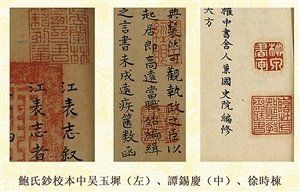 權中書舍人兼國史院編修
大方
典粲然可觀執政之臣以
起居即高遠當職始編緝
之言書未成遠疾篋數函
江表志
江表志者
鮑氏鈔校本中吳玉墀（左）、譚錫慶（中）、徐時棟